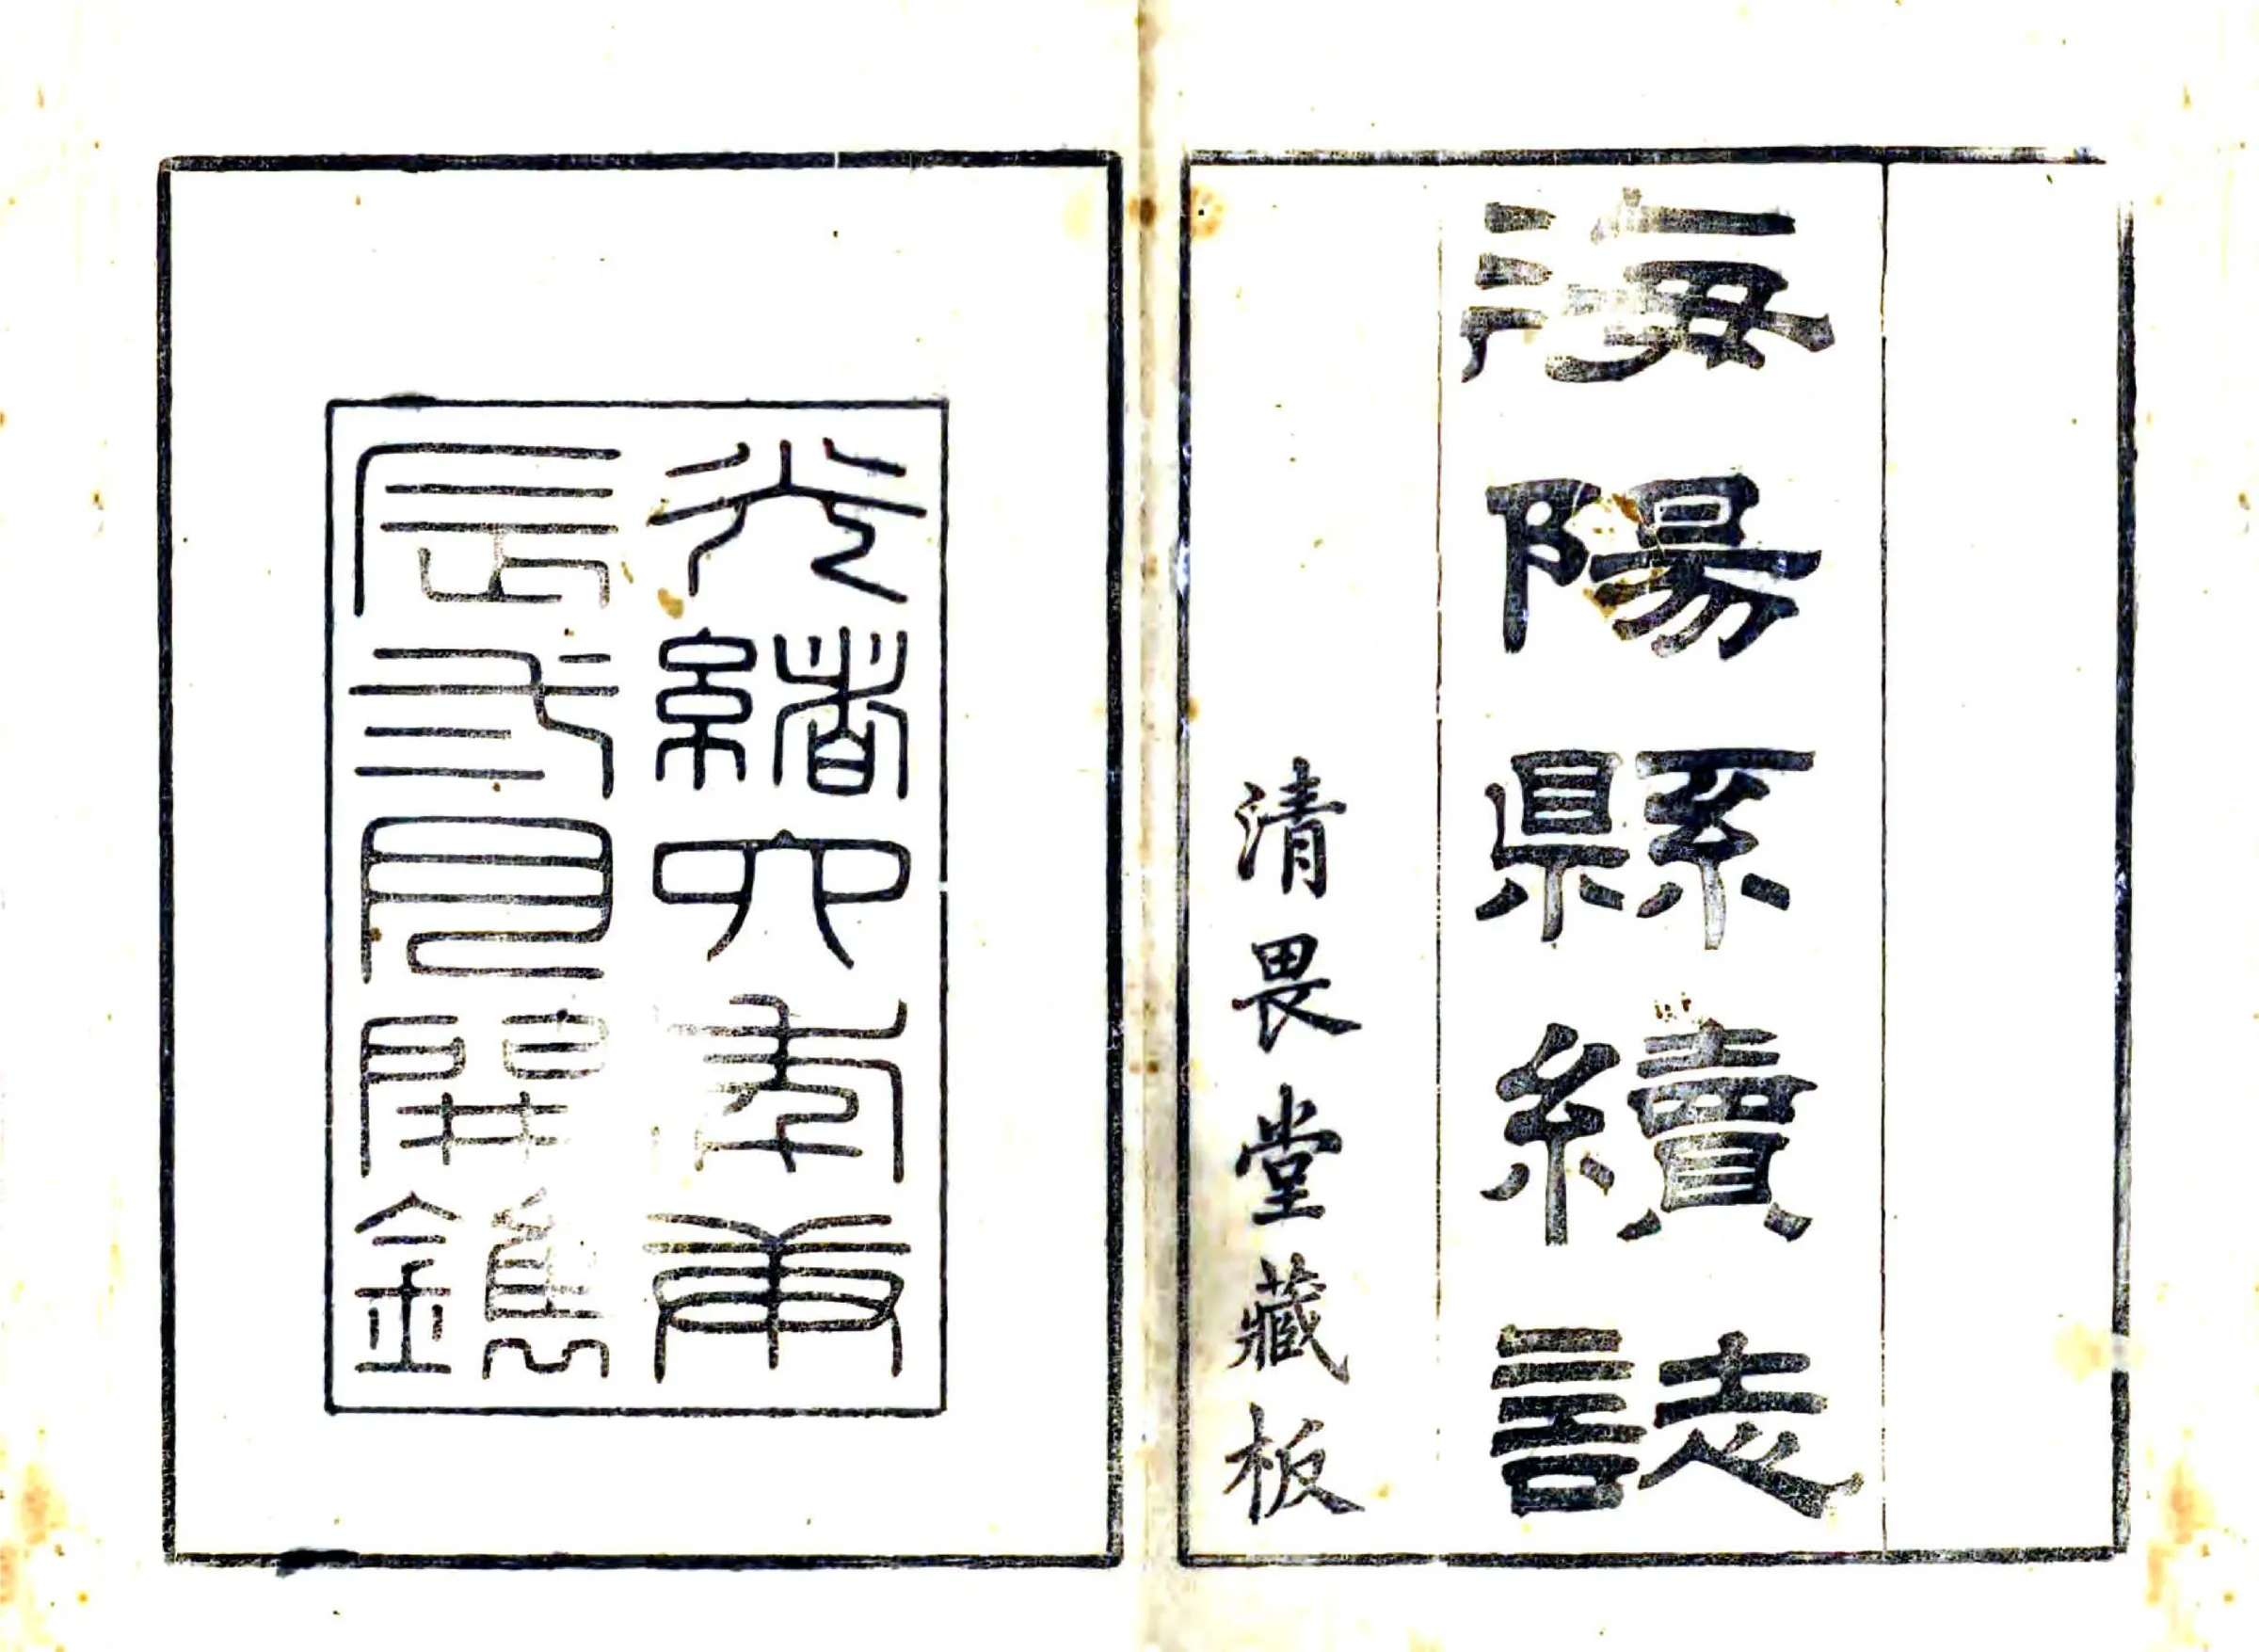 海陽縣續誌
清畏堂藏板
光緒六年庚
辰弍月開鐫